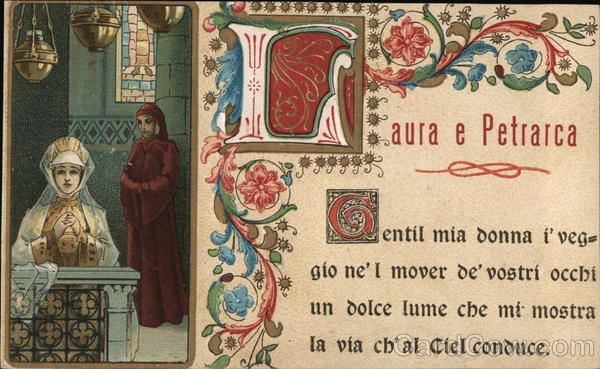 Laura e Petrarca
Gentil mia donna i' veg=
gio ne'l mover de' vostri occhi
un dolce lume che mi mostra
la via ch'al Ciel conduce.
CardCow.com